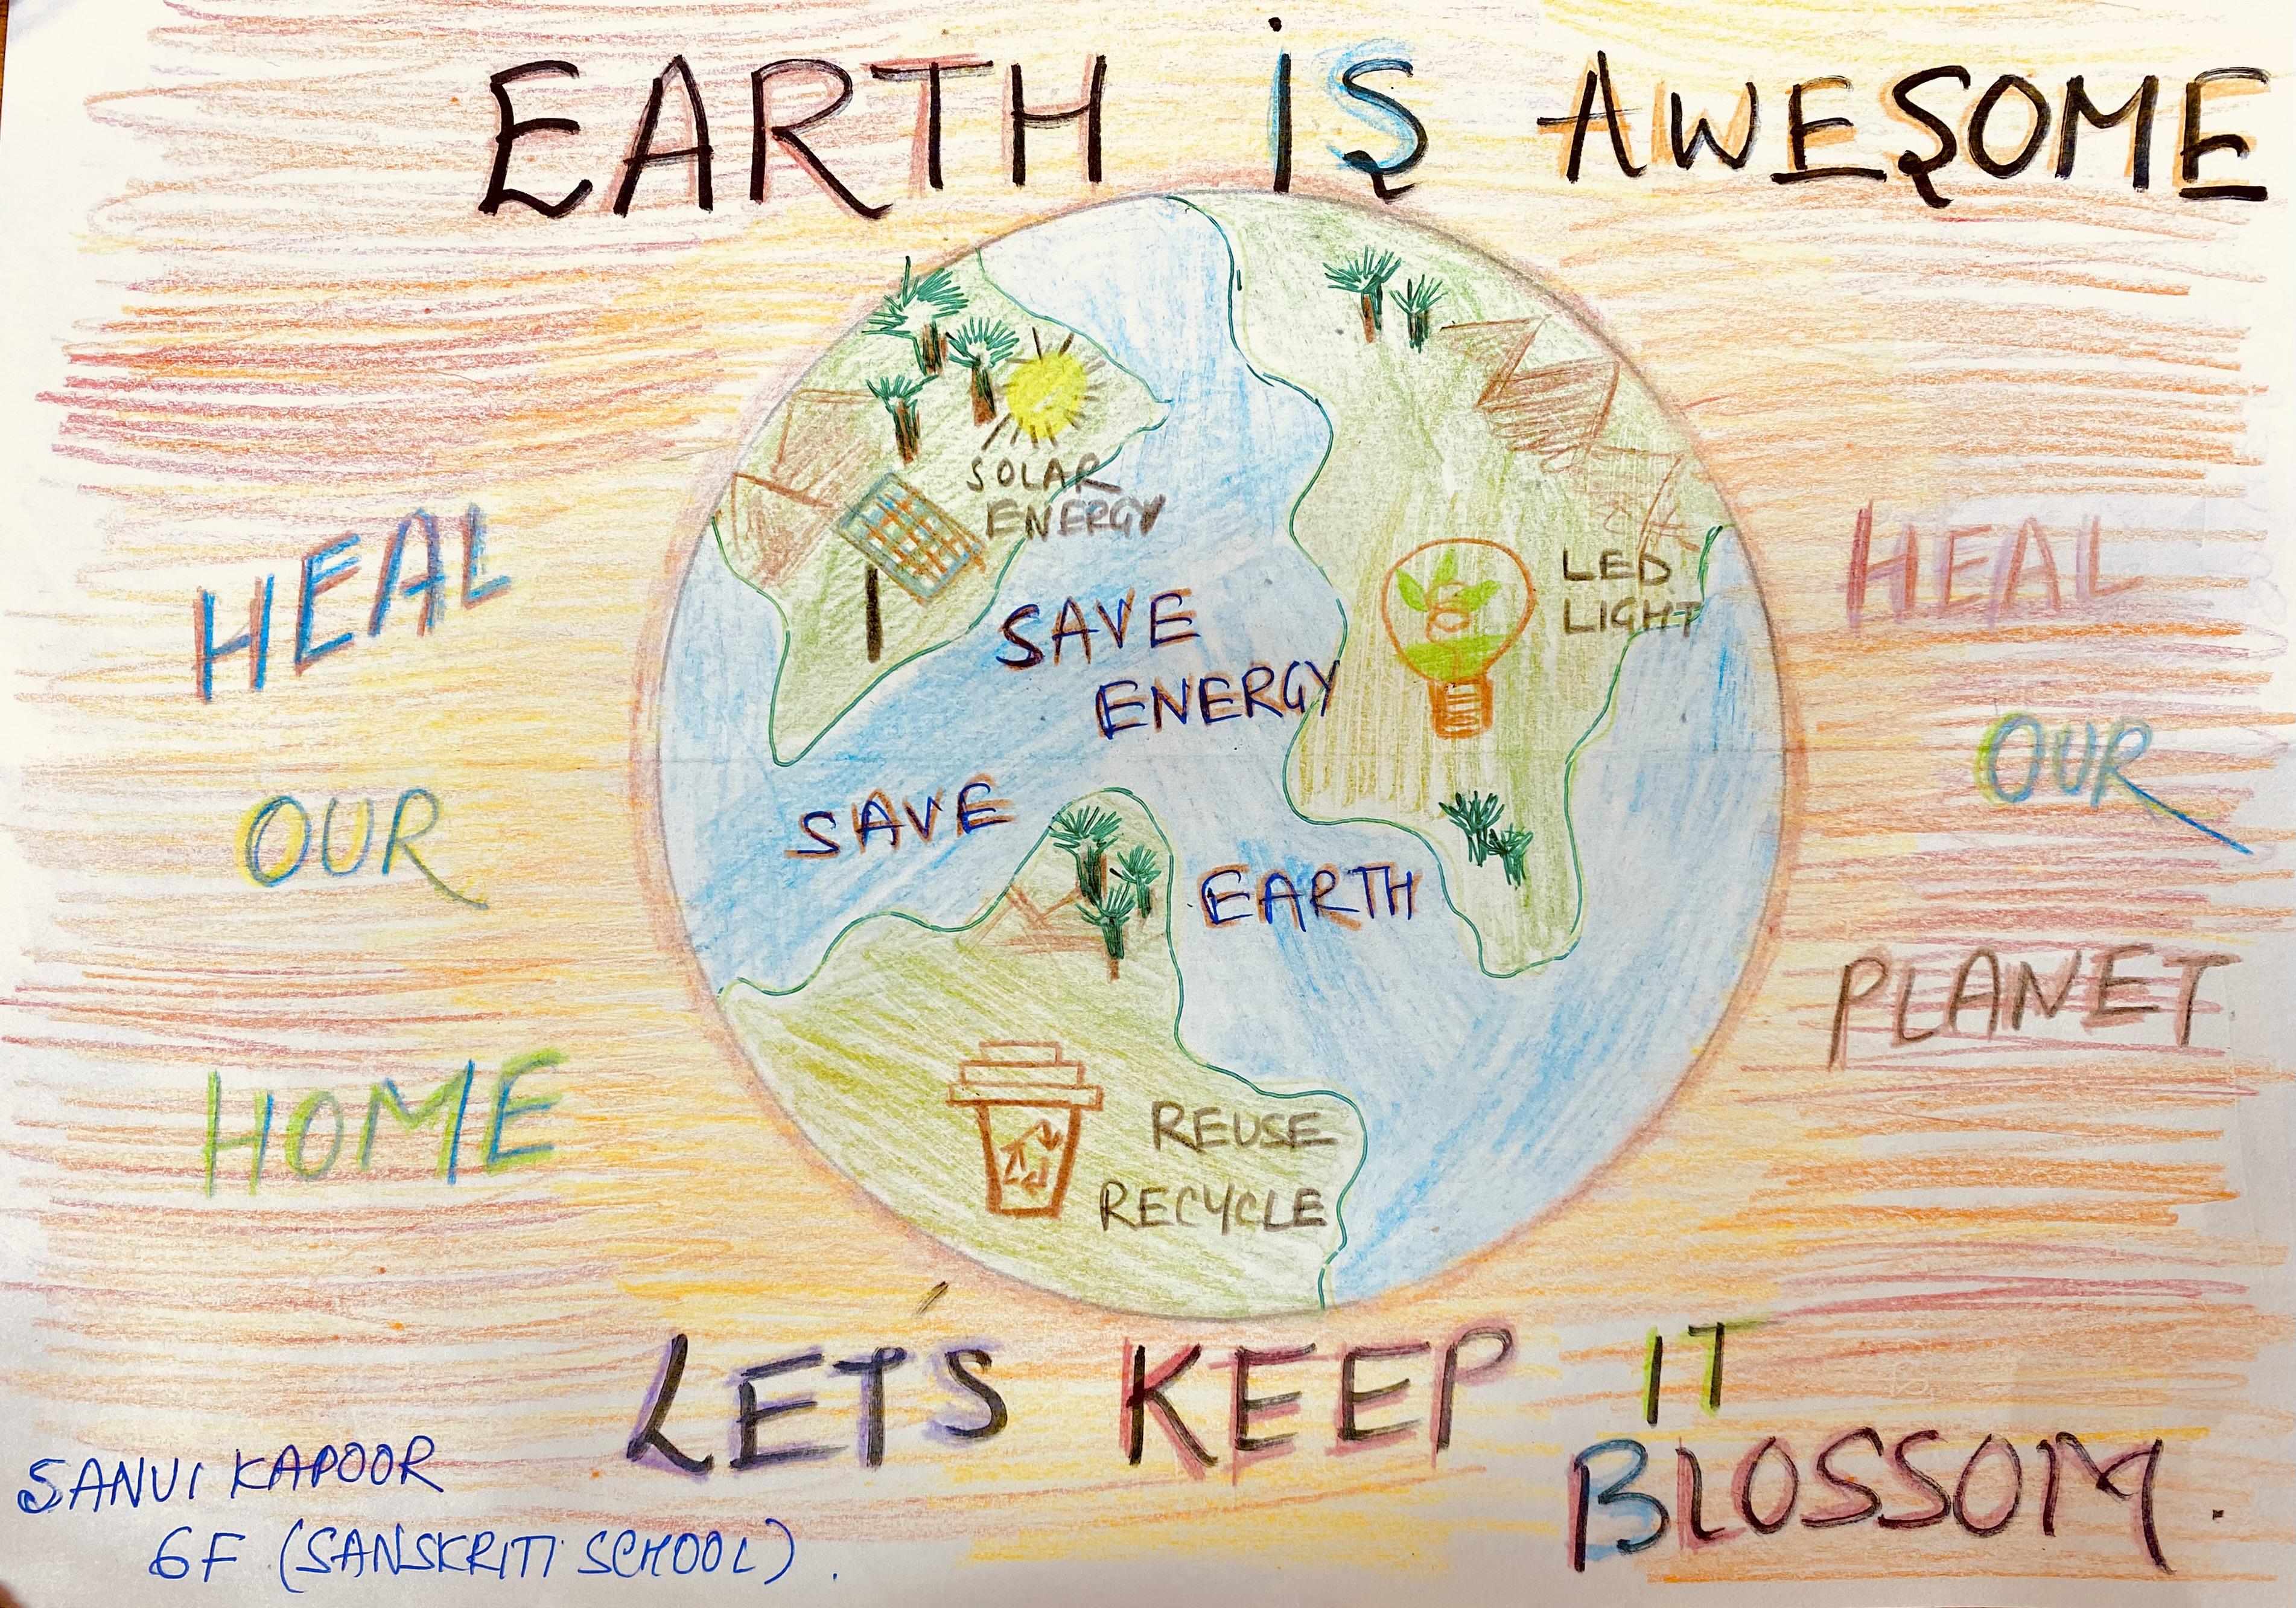 EARTH IS AWESOME
SOLAR
ENERGY
LED
LIGHT
SAVE
ENERGY
SAVE
EARTH
REUSE
RECYCLE
HEAL
OUR
HOME
HEAL
OUR
PLANET
LET'S KEEP IT
BLOSSOM.
SANVI KAPOOR
6F (SANSKRITI SCHOOL).